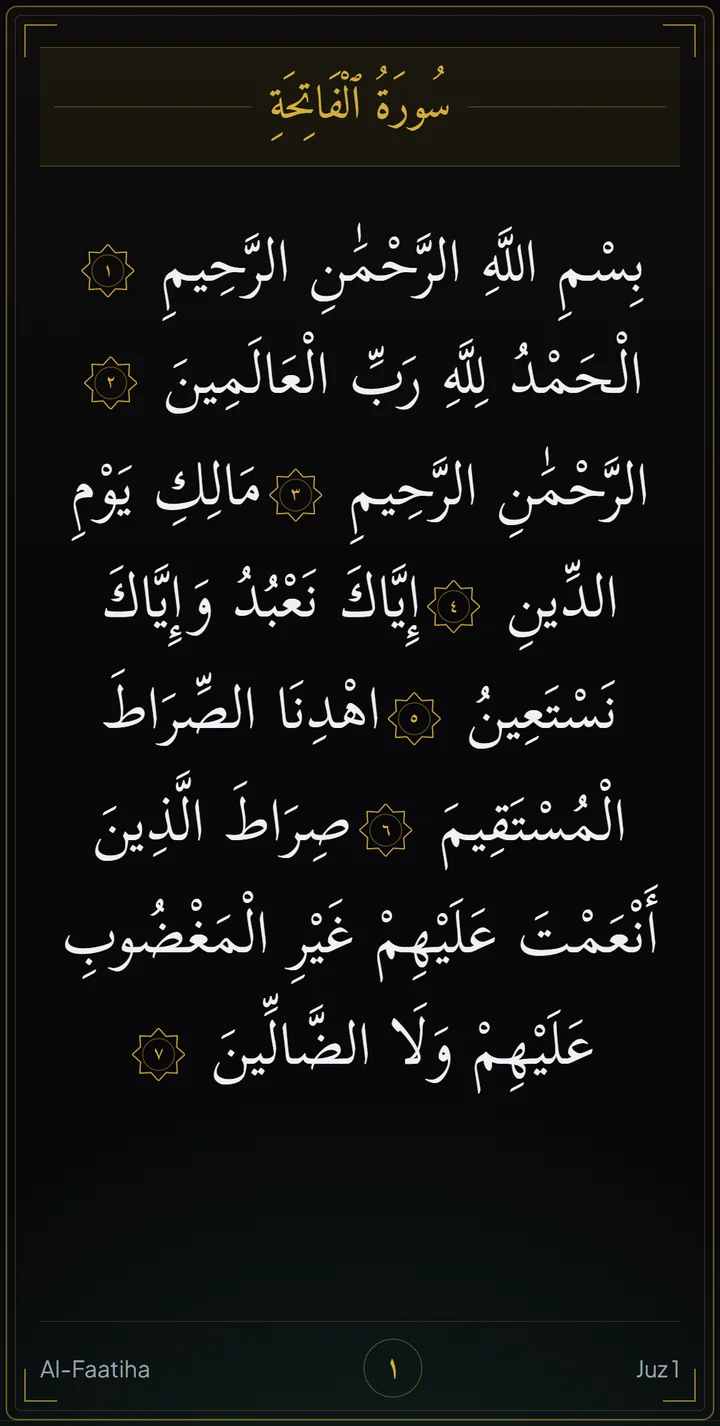 سُورَةُ ٱلْفَاتِحَةِ
بِسْمِ اللَّهِ الرَّحْمَٰنِ الرَّحِيمِ ١
الْحَمْدُ لِلَّهِ رَبِّ الْعَالَمِينَ ٢
الرَّحْمَٰنِ الرَّحِيمِ ٣ مَالِكِ يَوْمِ
الدِّينِ ٤ إِيَّاكَ نَعْبُدُ وَإِيَّاكَ
نَسْتَعِينُ ٥ اهْدِنَا الصِّرَاطَ
الْمُسْتَقِيمَ ٦ صِرَاطَ الَّذِينَ
أَنْعَمْتَ عَلَيْهِمْ غَيْرِ الْمَغْضُوبِ
عَلَيْهِمْ وَلَا الضَّالِّينَ ٧
Al-Faatiha ١ Juz 1